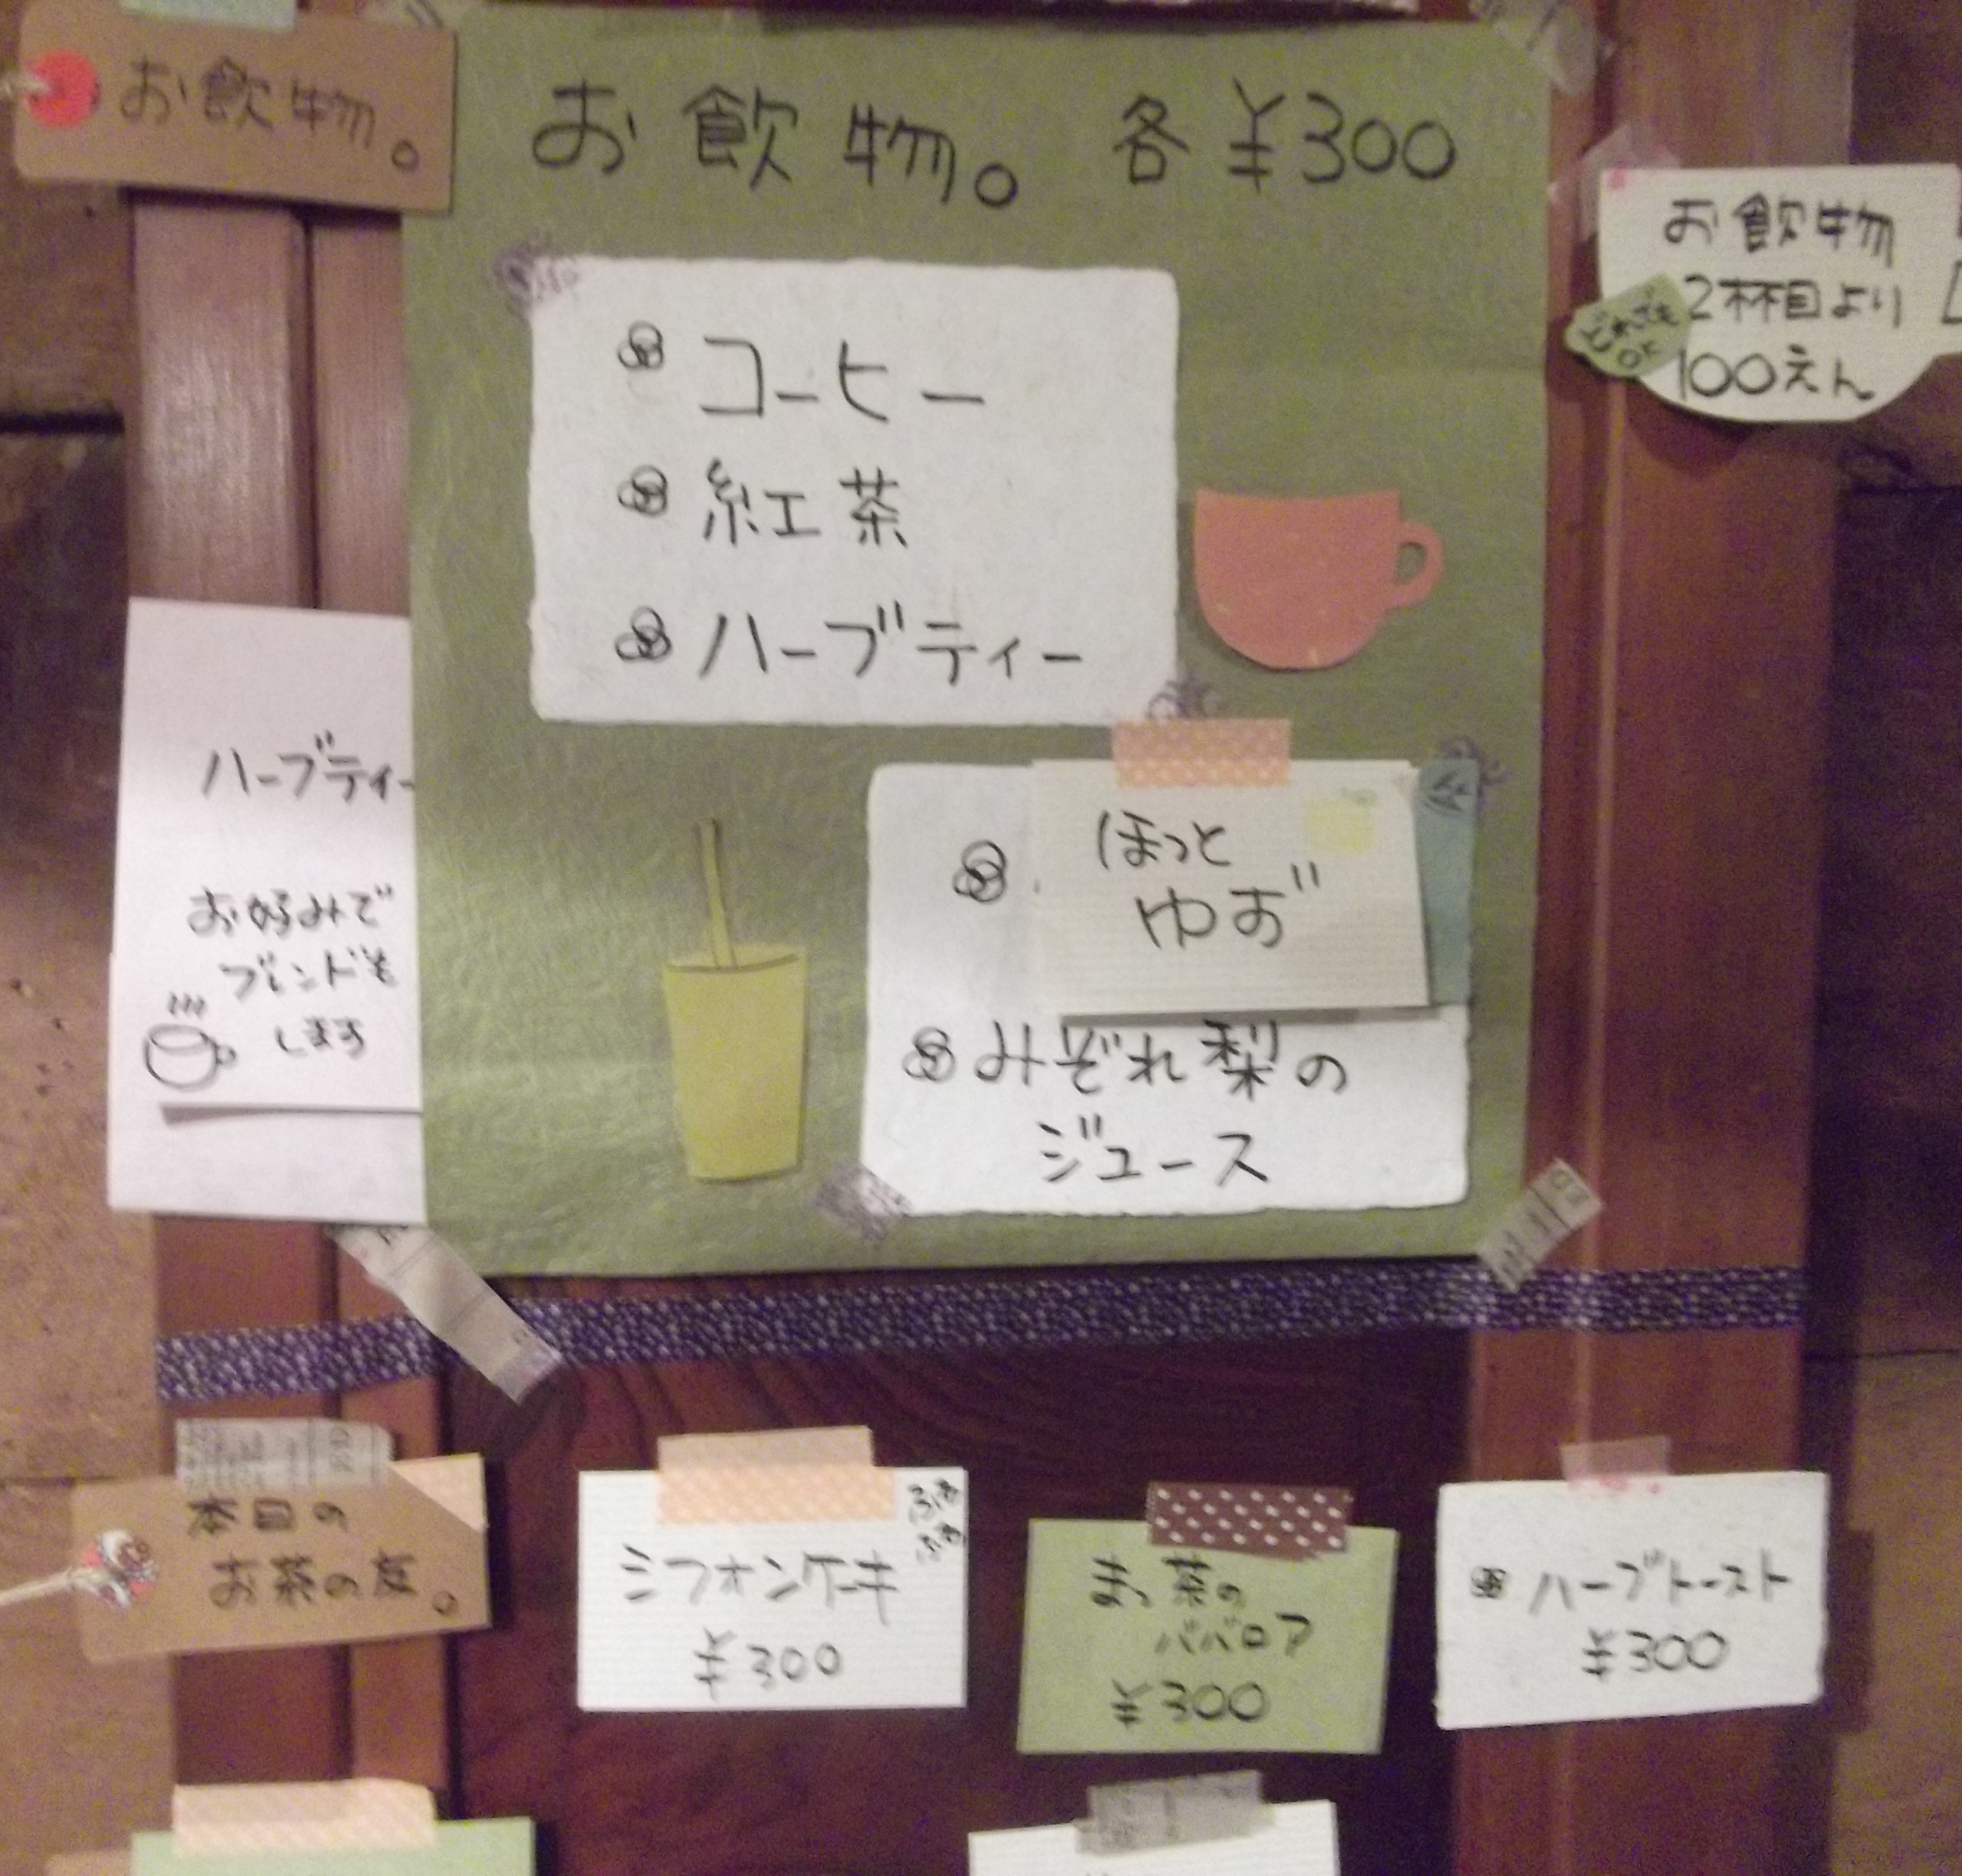 お飲物。
お飲物。 各 ¥300
お飲物
2杯目より
100えん
どれでも
OK
コーヒー
紅茶
ハーブティー
ハーブティー
お好みで
ブレンドも
します
ほっと
ゆず
みぞれ梨の
ジュース
本日の
お茶の友。
シフォンケーキ
¥300
まっ茶の
ババロア
¥300
ハーブトースト
¥300